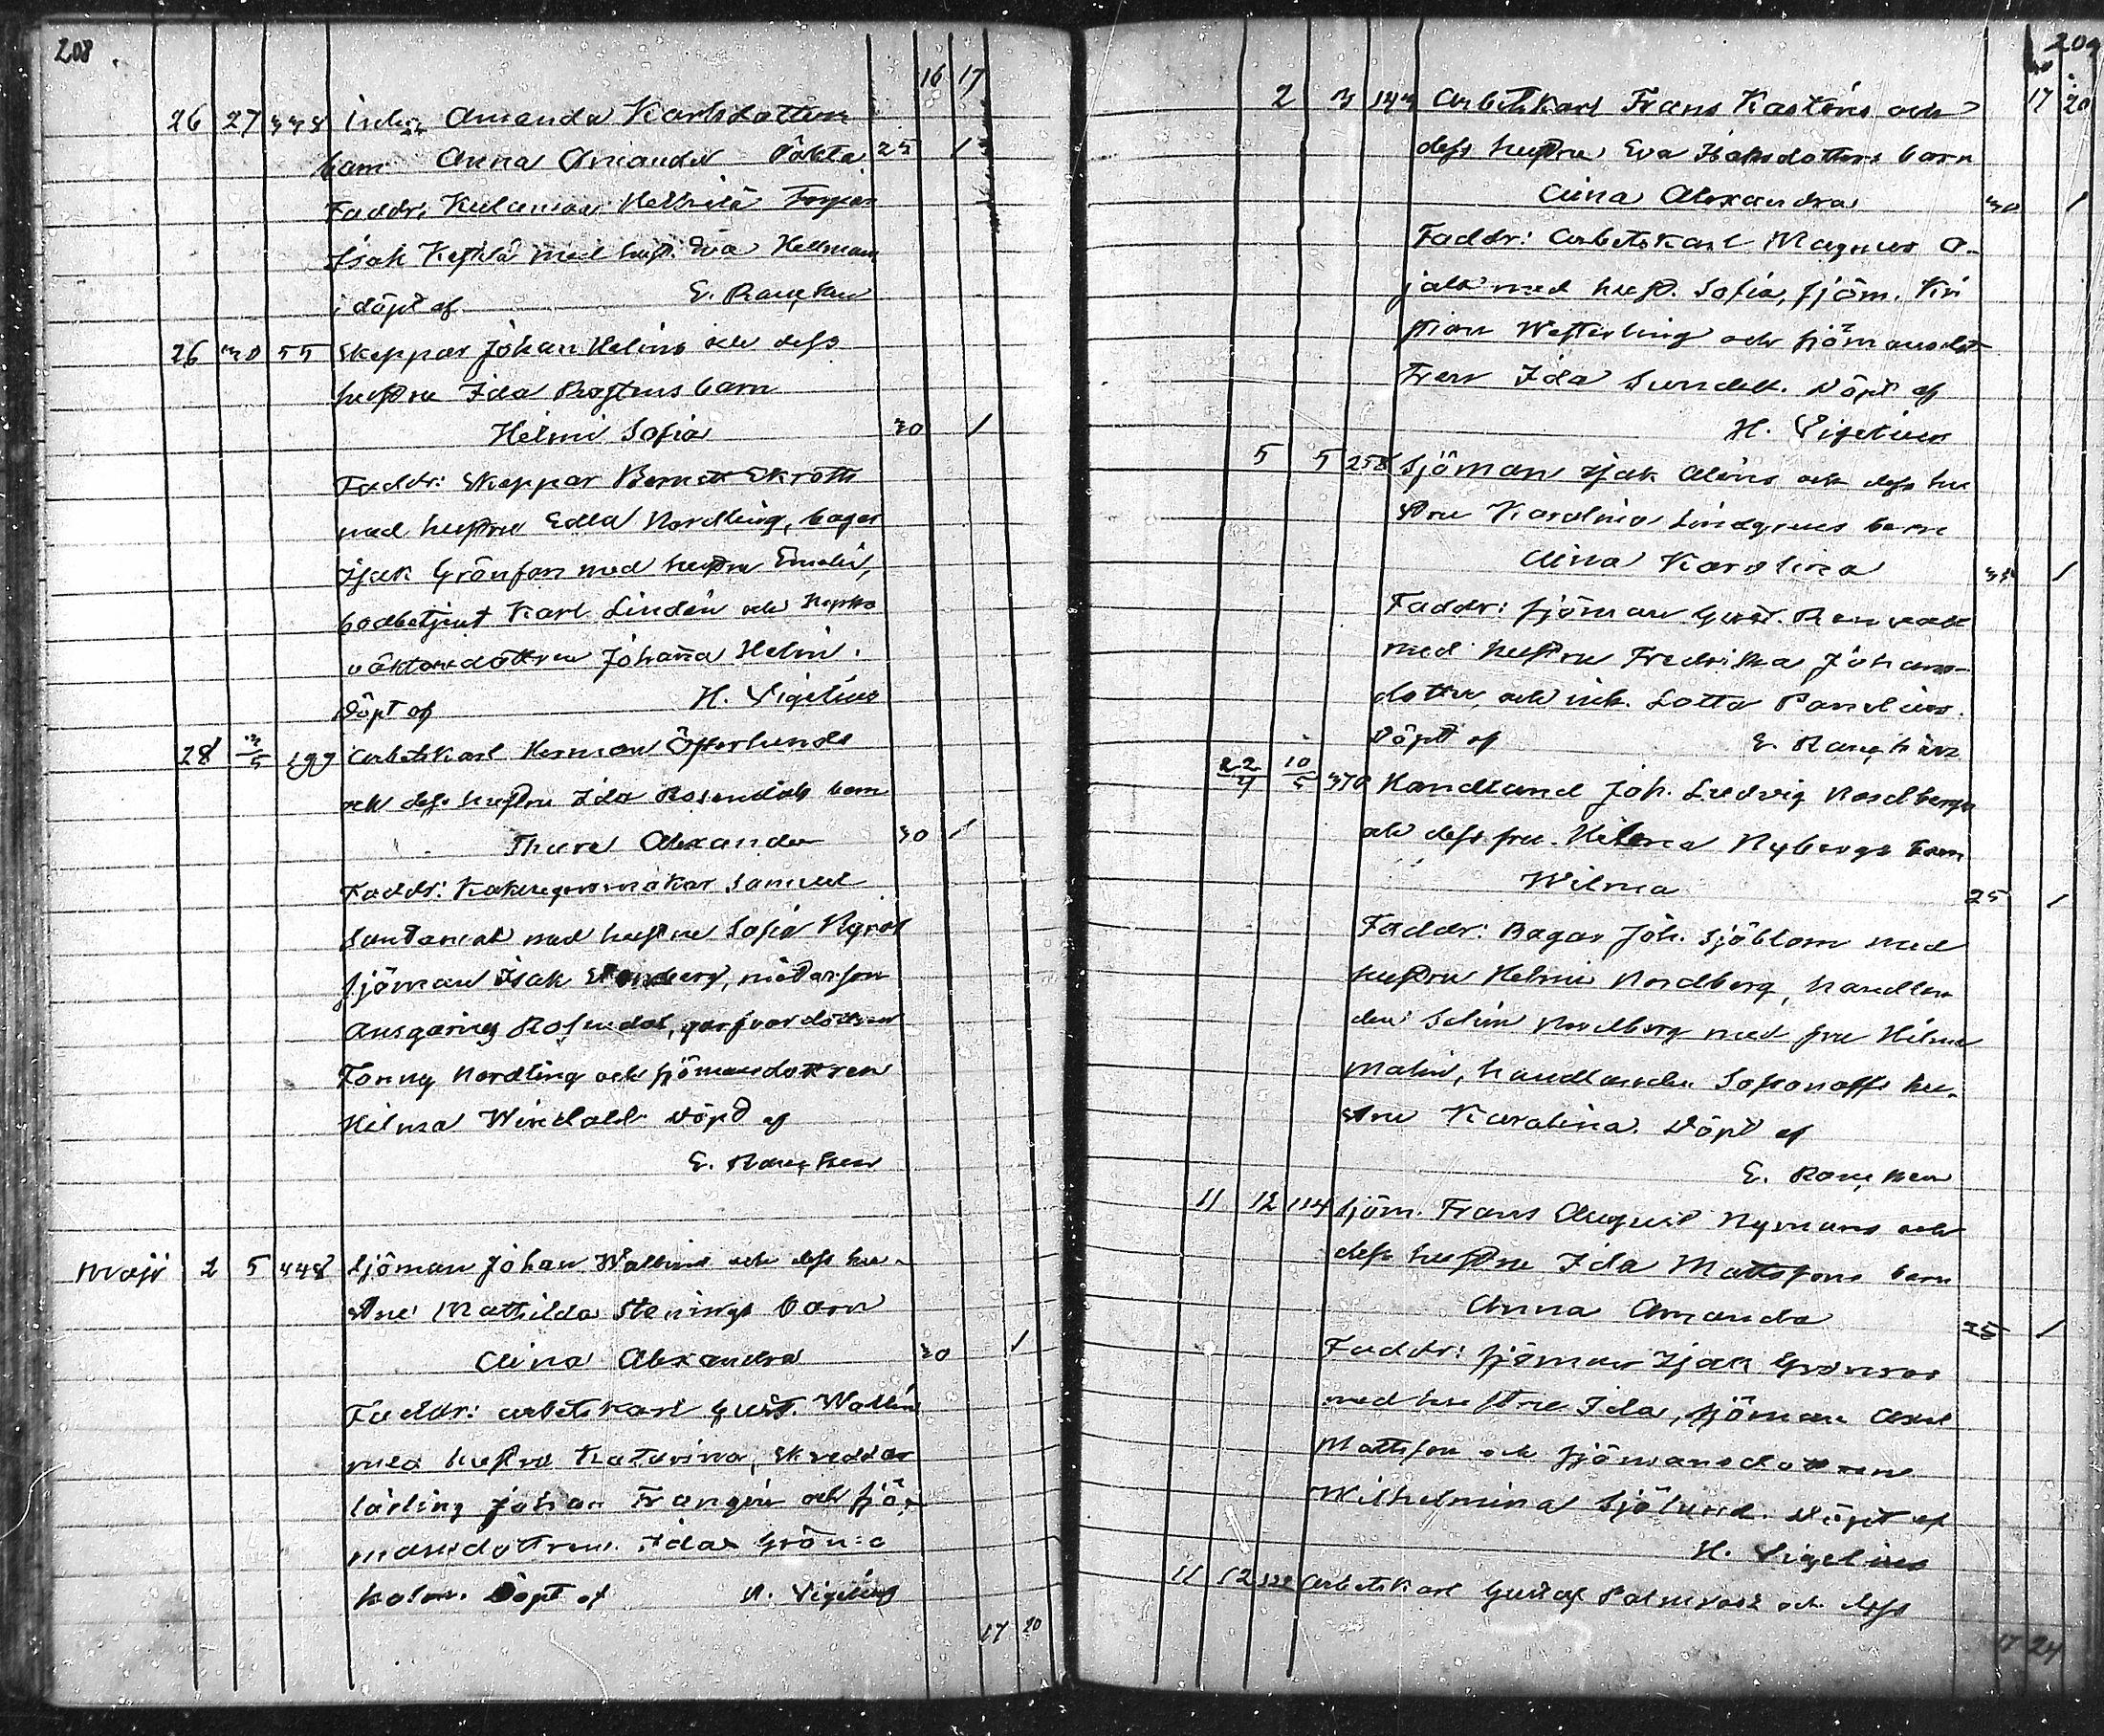 208
16 17
26 27 448 Amanda Karlsdotters
barn Anna Amanda 25 1
Faddr:
Isak med hust. Eva Hellman
döpt af E.
26 30 55 Skeppar Johan Helins och dess
hustru Ida barn
Helmi Sofia 30 1
Faddr: Skeppar
med hustru Edla Nordling, bagar
Isak Grönfors med hustru Emelie,
bodbetjent Karl Lindén och
Johanna Helin.
Döpt af H. Sigelius
28 3/5 199 Arbetskarl Herman Österlunds
och dess hustru Ida Rosendals barn
Thure Alexander 30 1
Faddr: Kakugnsmakar Samuel
med hustru Sofia
sjöman Isak
Rosendal, garfvardottren
Fanny Nordling och sjömansdottren
Hilma Döpt af
E.
Maji 2 5 448 Sjöman Johan Wallins och dess hu-
stru Mathilda Stenings barn
Aina Alexandra 30 1
Faddr: arbetskarl Gust. Wallin
med hustru Katarina, skreddar
lärling Johan och sjö-
mansdottren Ida Grön-
holm. Döpt af H. Sigelius
17 20
209
17 20
2 3 144 Arbetskarl Frans Kasténs och
dess hustru Eva Isaksdotters barn
Aina Alexandra 30 1
Faddr: Arbetskarl Magnus O-
jala med hust. Sofia, sjöm. Kri
stian Westerling och sjömansdot
tren Ida Sundell. Döpt af
H. Sigelius
5 5 258 Sjöman Isak Aléns och dess hu
stru Karolina Lindgrens barn
Aina Karolina 1
Faddr: sjöman Gust. Renvall
med hustru Fredrika Johans-
dotter, och Lotta
Döpt af E.
22/4 10/5 370 Handland Joh. Ludvig Nordbergs
och dess fru Helena Nybergs barn
Wilma 25 1
Faddr: Bagar Joh. Sjöblom med
hustru Helmi Nordberg, handlan
den Selim Nordberg med fru Hilma
Malin, handlanden hu-
stru Karolina. Döpt af
E.
11 12 114 Sjöm. Frans August Nymans och
dess hustru Ida Mattssons barn
Anna Amanda 25 1
Faddr: sjöman Isak Grönroos
med hustru Ida, sjöman Axel
Mattsson och sjömansdottren
Wilhelmina Sjölund. Döpt af
H. Sigelius
11 12 Arbetskarl Gustaf Palmroos och dess
17 24